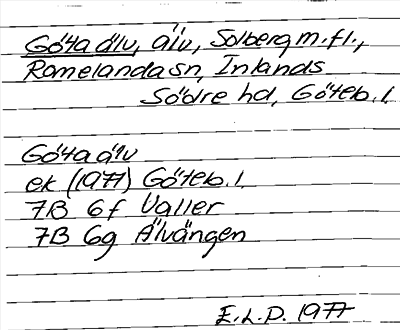 Göta älv, älv, Solberg m.fl.,
Romelanda sn, Inlands
Södre hd, Göteb. l.
Göta älv
ek (1977) Göteb. l.
7B 6f Ugller
7B 6g Älvängen
E.L.D. 1977